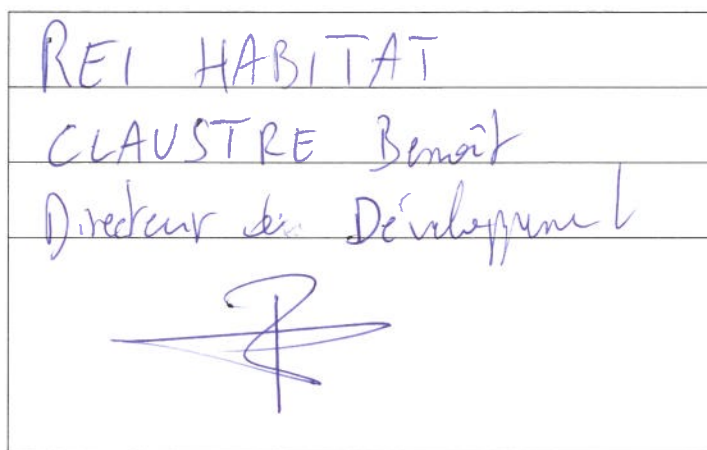 REI HABITAT
CLAUSTRE Benoît
Directeur de Développement